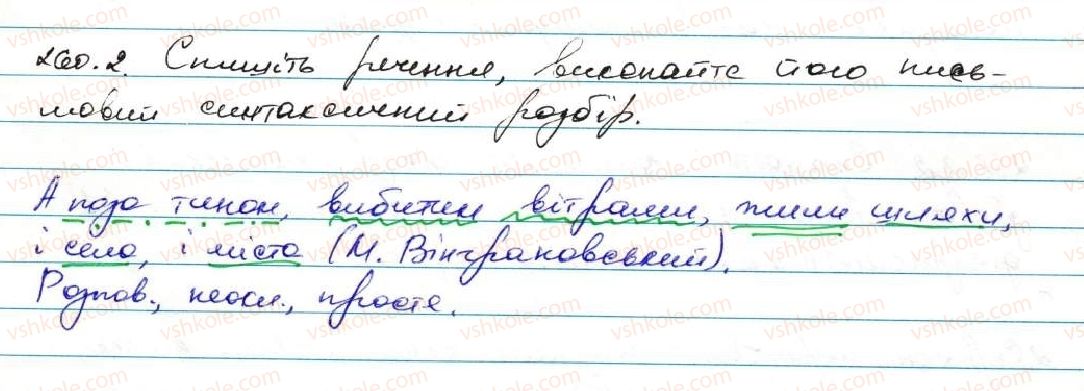 260.2. Спишіть речення, виконайте його пись-
мовий синтаксичний розбір.
А поза тином, вибитим вітрами, жили шляхи,
і села, і міста (М. Вінграновський).
Розпов., неокл., просте.